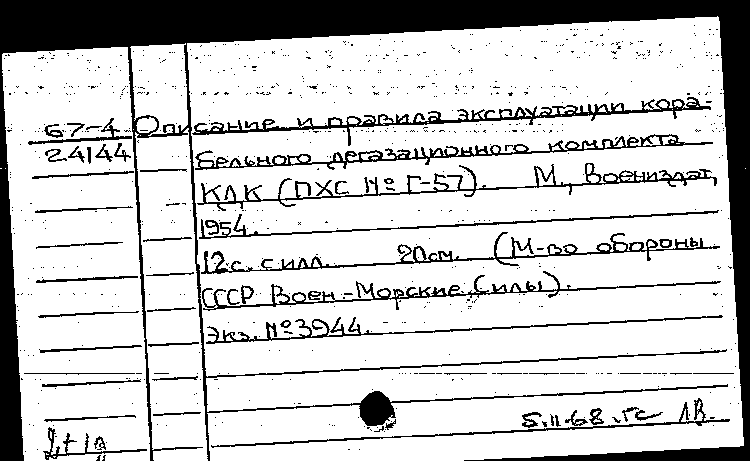 67-4 Описание и правила эксплуатации кора-
24144 бельного дегазационного комплекта
КДК (ПХС № Г-57). М., Воениздат,
1954.
12с. с илл. 20см. (М-во обороны
СССР Воен-Морские Силы).
Экз. № 3944.
5.II-68.гс ЛВ.